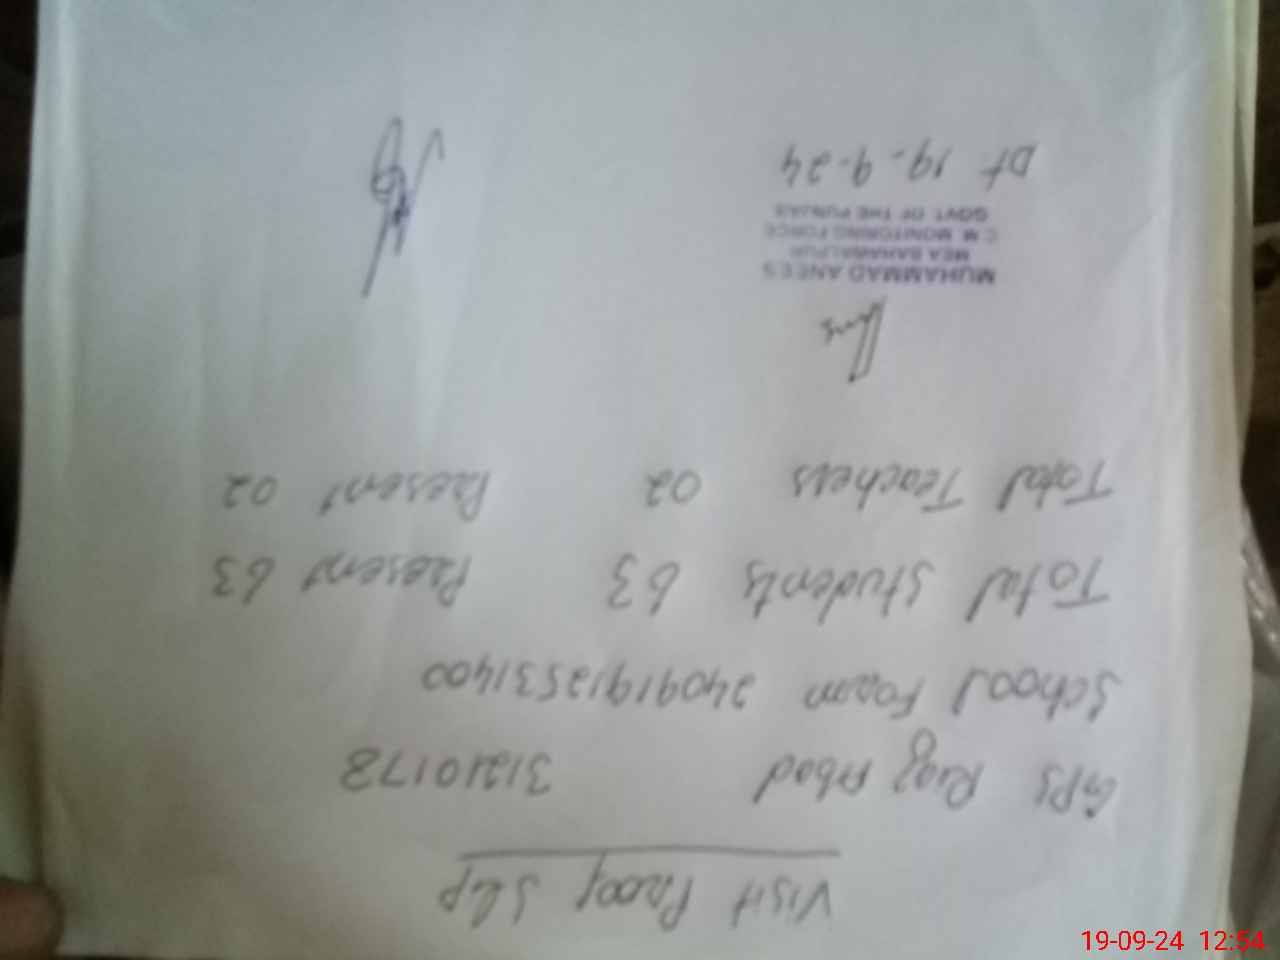 Visit Proof Slp
GPS Riaz Abad 31210178
School Form 24091912531400
Total Students 63 Present 63
Total Teachers 02 Present 02
MUHAMMAD ANEES
MEA BAHAWALPUR
C.M. MONITORING FORCE
GOVT. OF THE PUNJAB
Dt 19-9-24
19-09-24 12:54